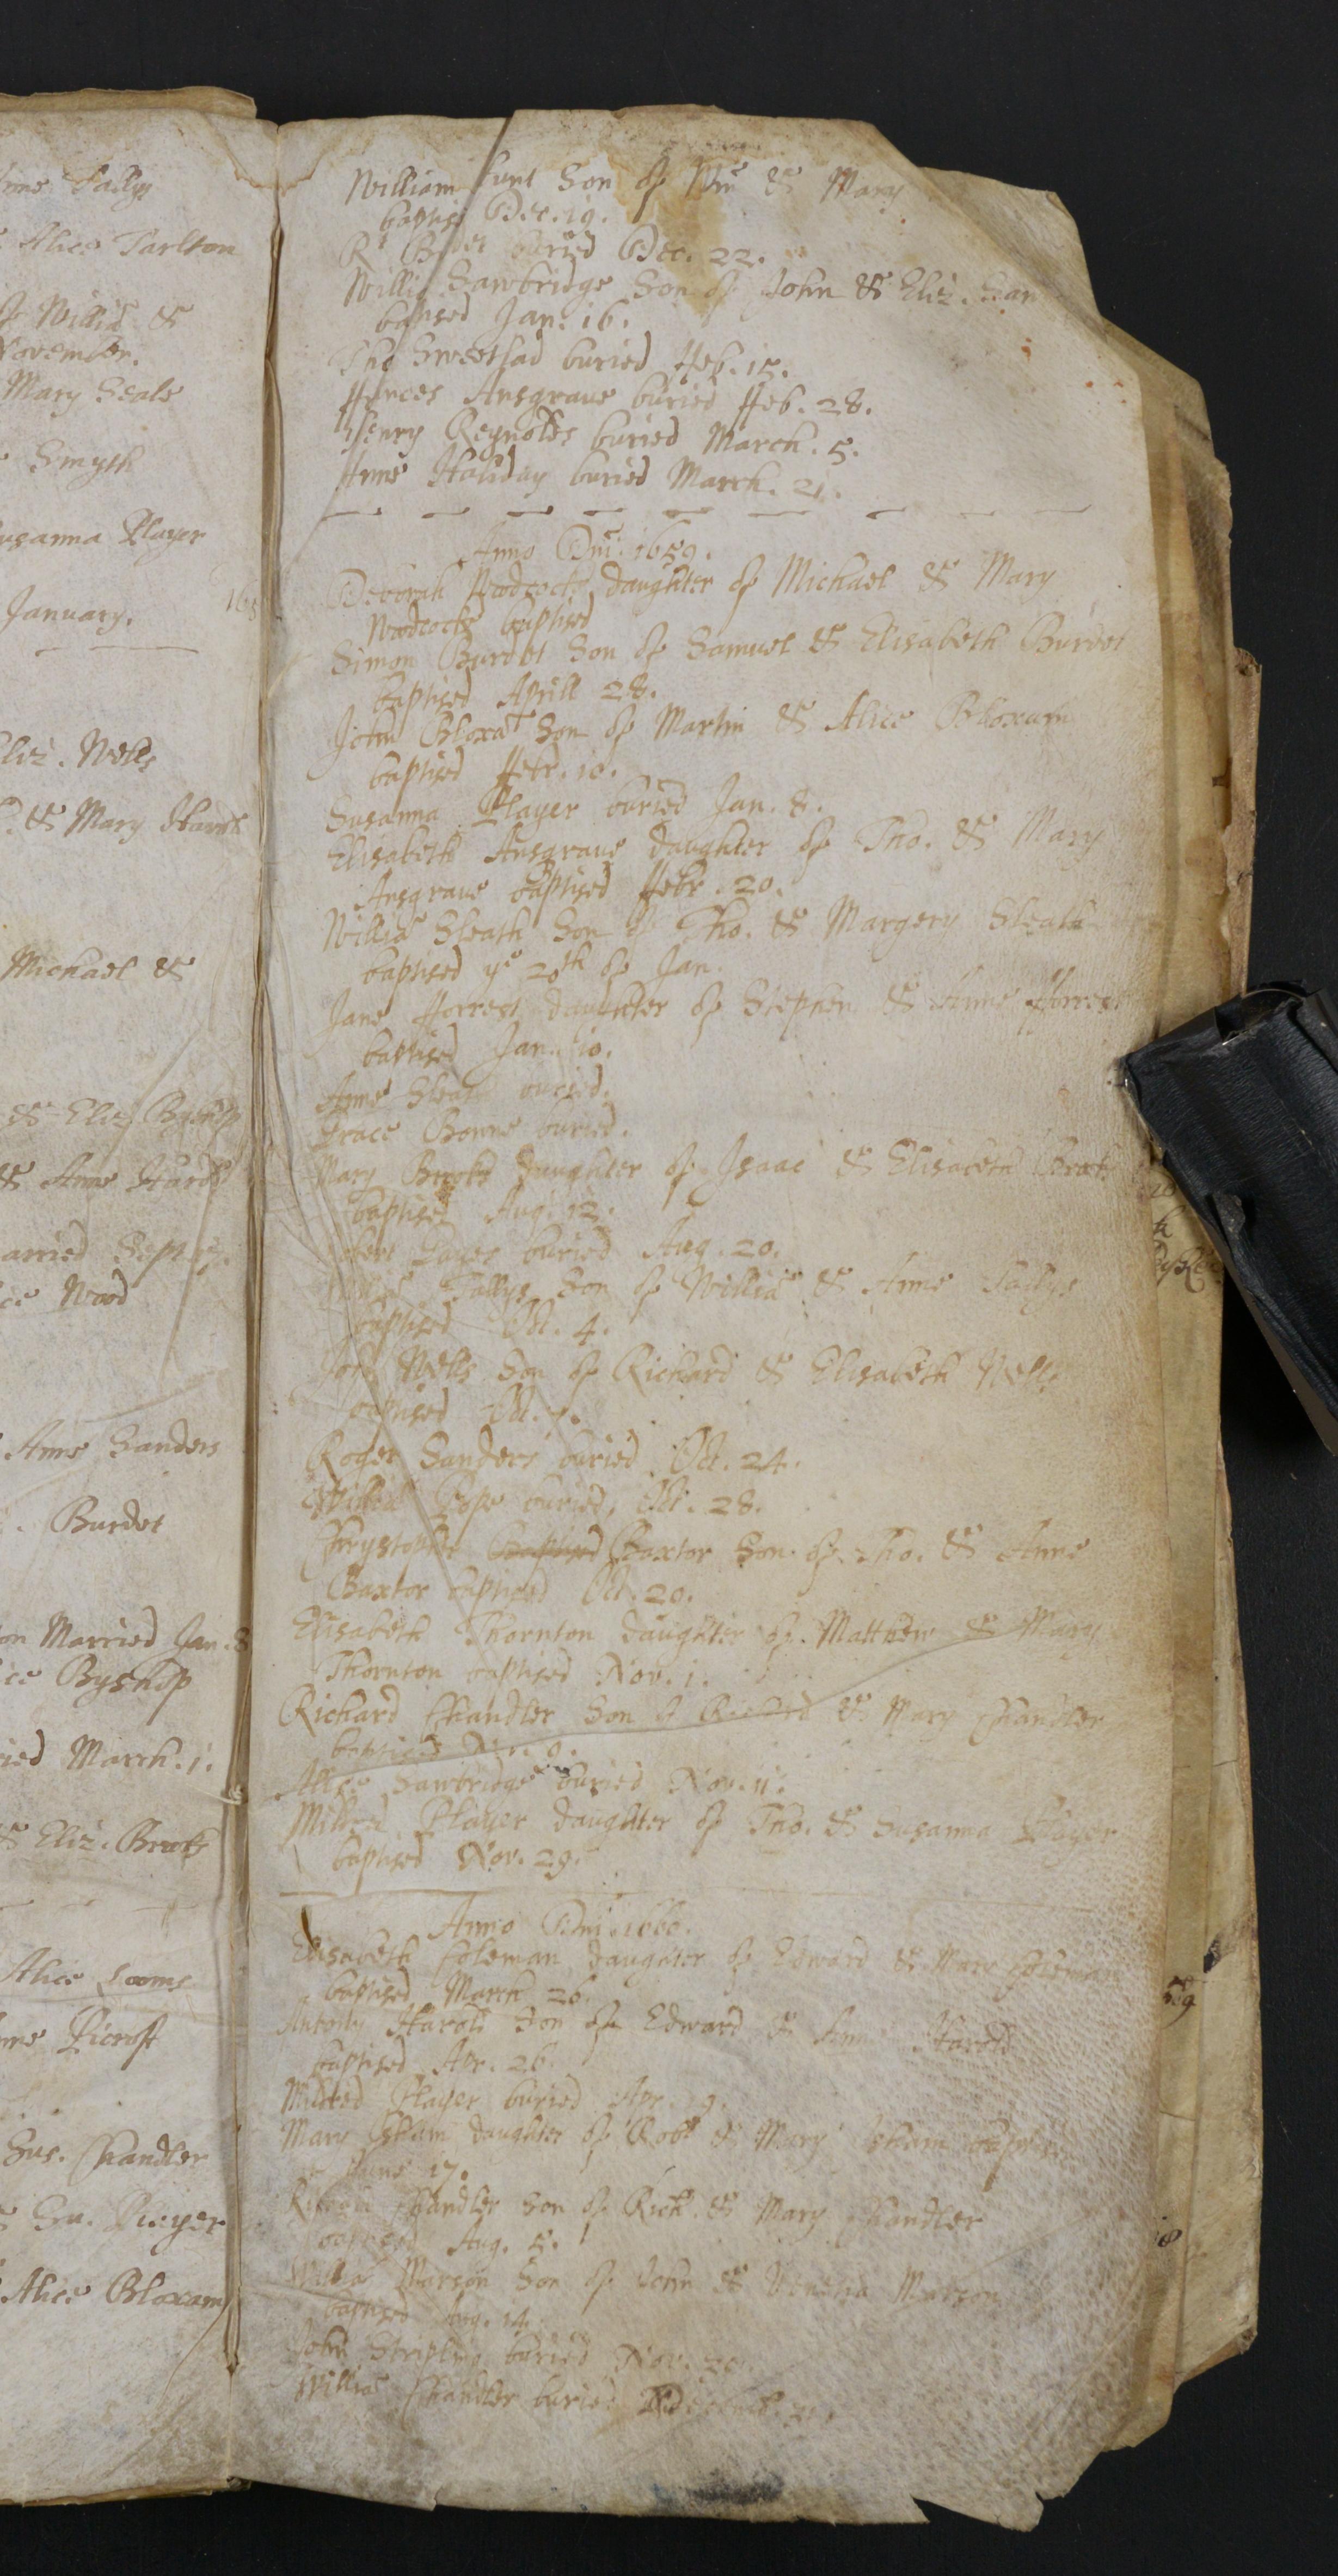 Anne Tallys
Alice Tarlton
of Willia &
November.
Mary Seale
Smyth
Susanna Player
January.
Eliz. Wells
& Mary
Michael &
& Eliz Byshop
& Anne
married Sept.
Wood
Anne Sanders
Burdet
Married Jan. 8
Byshop
March. 1.
& Eliz. Brooks
Alice
Picroft
Sus. Chandler
Su. Player
Alice Bloxam
William Hunt Son of Wm & Mary
baptis Dec. 19.
Rt buried Dec. 22.
Willia Sawbridge Son of John & Eliz. Saw
baptised Jan. 16.
Tho Sweetlad buried Feb. 15.
Ansgrave buried Feb. 28.
Henry Reynolds buried March. 5.
Anne Haliday buried March. 21.
Anno Dni. 1659.
Deborah Woodcocke daughter of Michael & Mary
Woodcocke baptised
Simon Burdet Son of Samuel & Elisabeth Burdet
baptised Aprill 28.
John Bloxa Son of Martin & Alice Bloxam
baptised Febr. 10.
Susanna Player buried Jan. 8.
Elisabeth Ansgrave daughter of Tho. & Mary
Ansgrave baptised Febr. 20.
Willia Sleath Son of Tho. & Margery Sleath
baptised ye 20th of Jan.
Jane Forrest daughter of Stephen & Anne Forrest
baptised Jan. 10.
Anne Sleath buried.
Grace Bonne buried.
Mary Brooks daughter of Isaac & Elisabeth Brooks
baptised Aug. 12.
buried Aug. 20.
Tallys Son of Willia & Anne Tallys
baptised Oct. 4.
John Wells Son of Richard & Elisabeth Wells
baptised Oct. 7.
Roger Sanders buried Oct. 24.
Willia Pope buried, Oct. 28.
Chrystopher Baptised Baxtor Son of Tho. & Anne
Baxtor baptised Oct. 20.
Elisabeth Thornton daughter of Matthew & Mary
Thornton baptised Nov. 1.
Richard Chandler Son of Richard & Mary Chandler
baptised
Alice Sawbridge buried Nov. 11.
Milfred Player daughter of Tho. & Susanna Player
baptised Nov. 29.
Anno Dni. 1660.
Elisabeth Coleman daughter of Edward & Mary Coleman
baptised March 26.
Antony Harold Son of Edward & Anne Harold
baptised Apr. 26.
Milfred Player buried Apr.
Mary daughter of Robt & Mary
June 17.
Chandler Son of Rich. & Mary Chandler
baptised Aug. 5.
Willia Marson Son of John & Marson
baptised Aug. 14.
John Stripling buried Nov. 20.
Willia Chandler buried